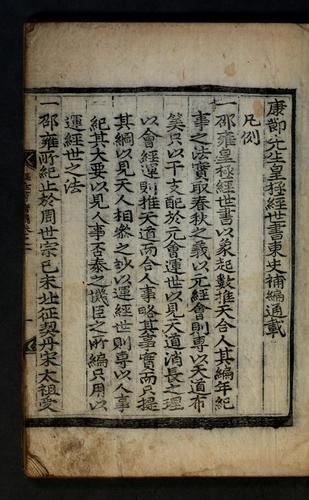 康節先生皇極經世書東史補編通載
凡例
一邵雍皇極經世書以象起數推天合人其編年紀
事之法實取春秋之義以元經會則專以天道布
筭只以干支配於元會運世以見天道消長之理
以會經運則推天道而合人事略其事實而只提
其綱以見天人相參之妙以運經世則專以人事
紀其大要以見人事否泰之機臣之所編只用以
運經世之法
一邵雍所紀止於周世宗己未北征契丹宋太祖受